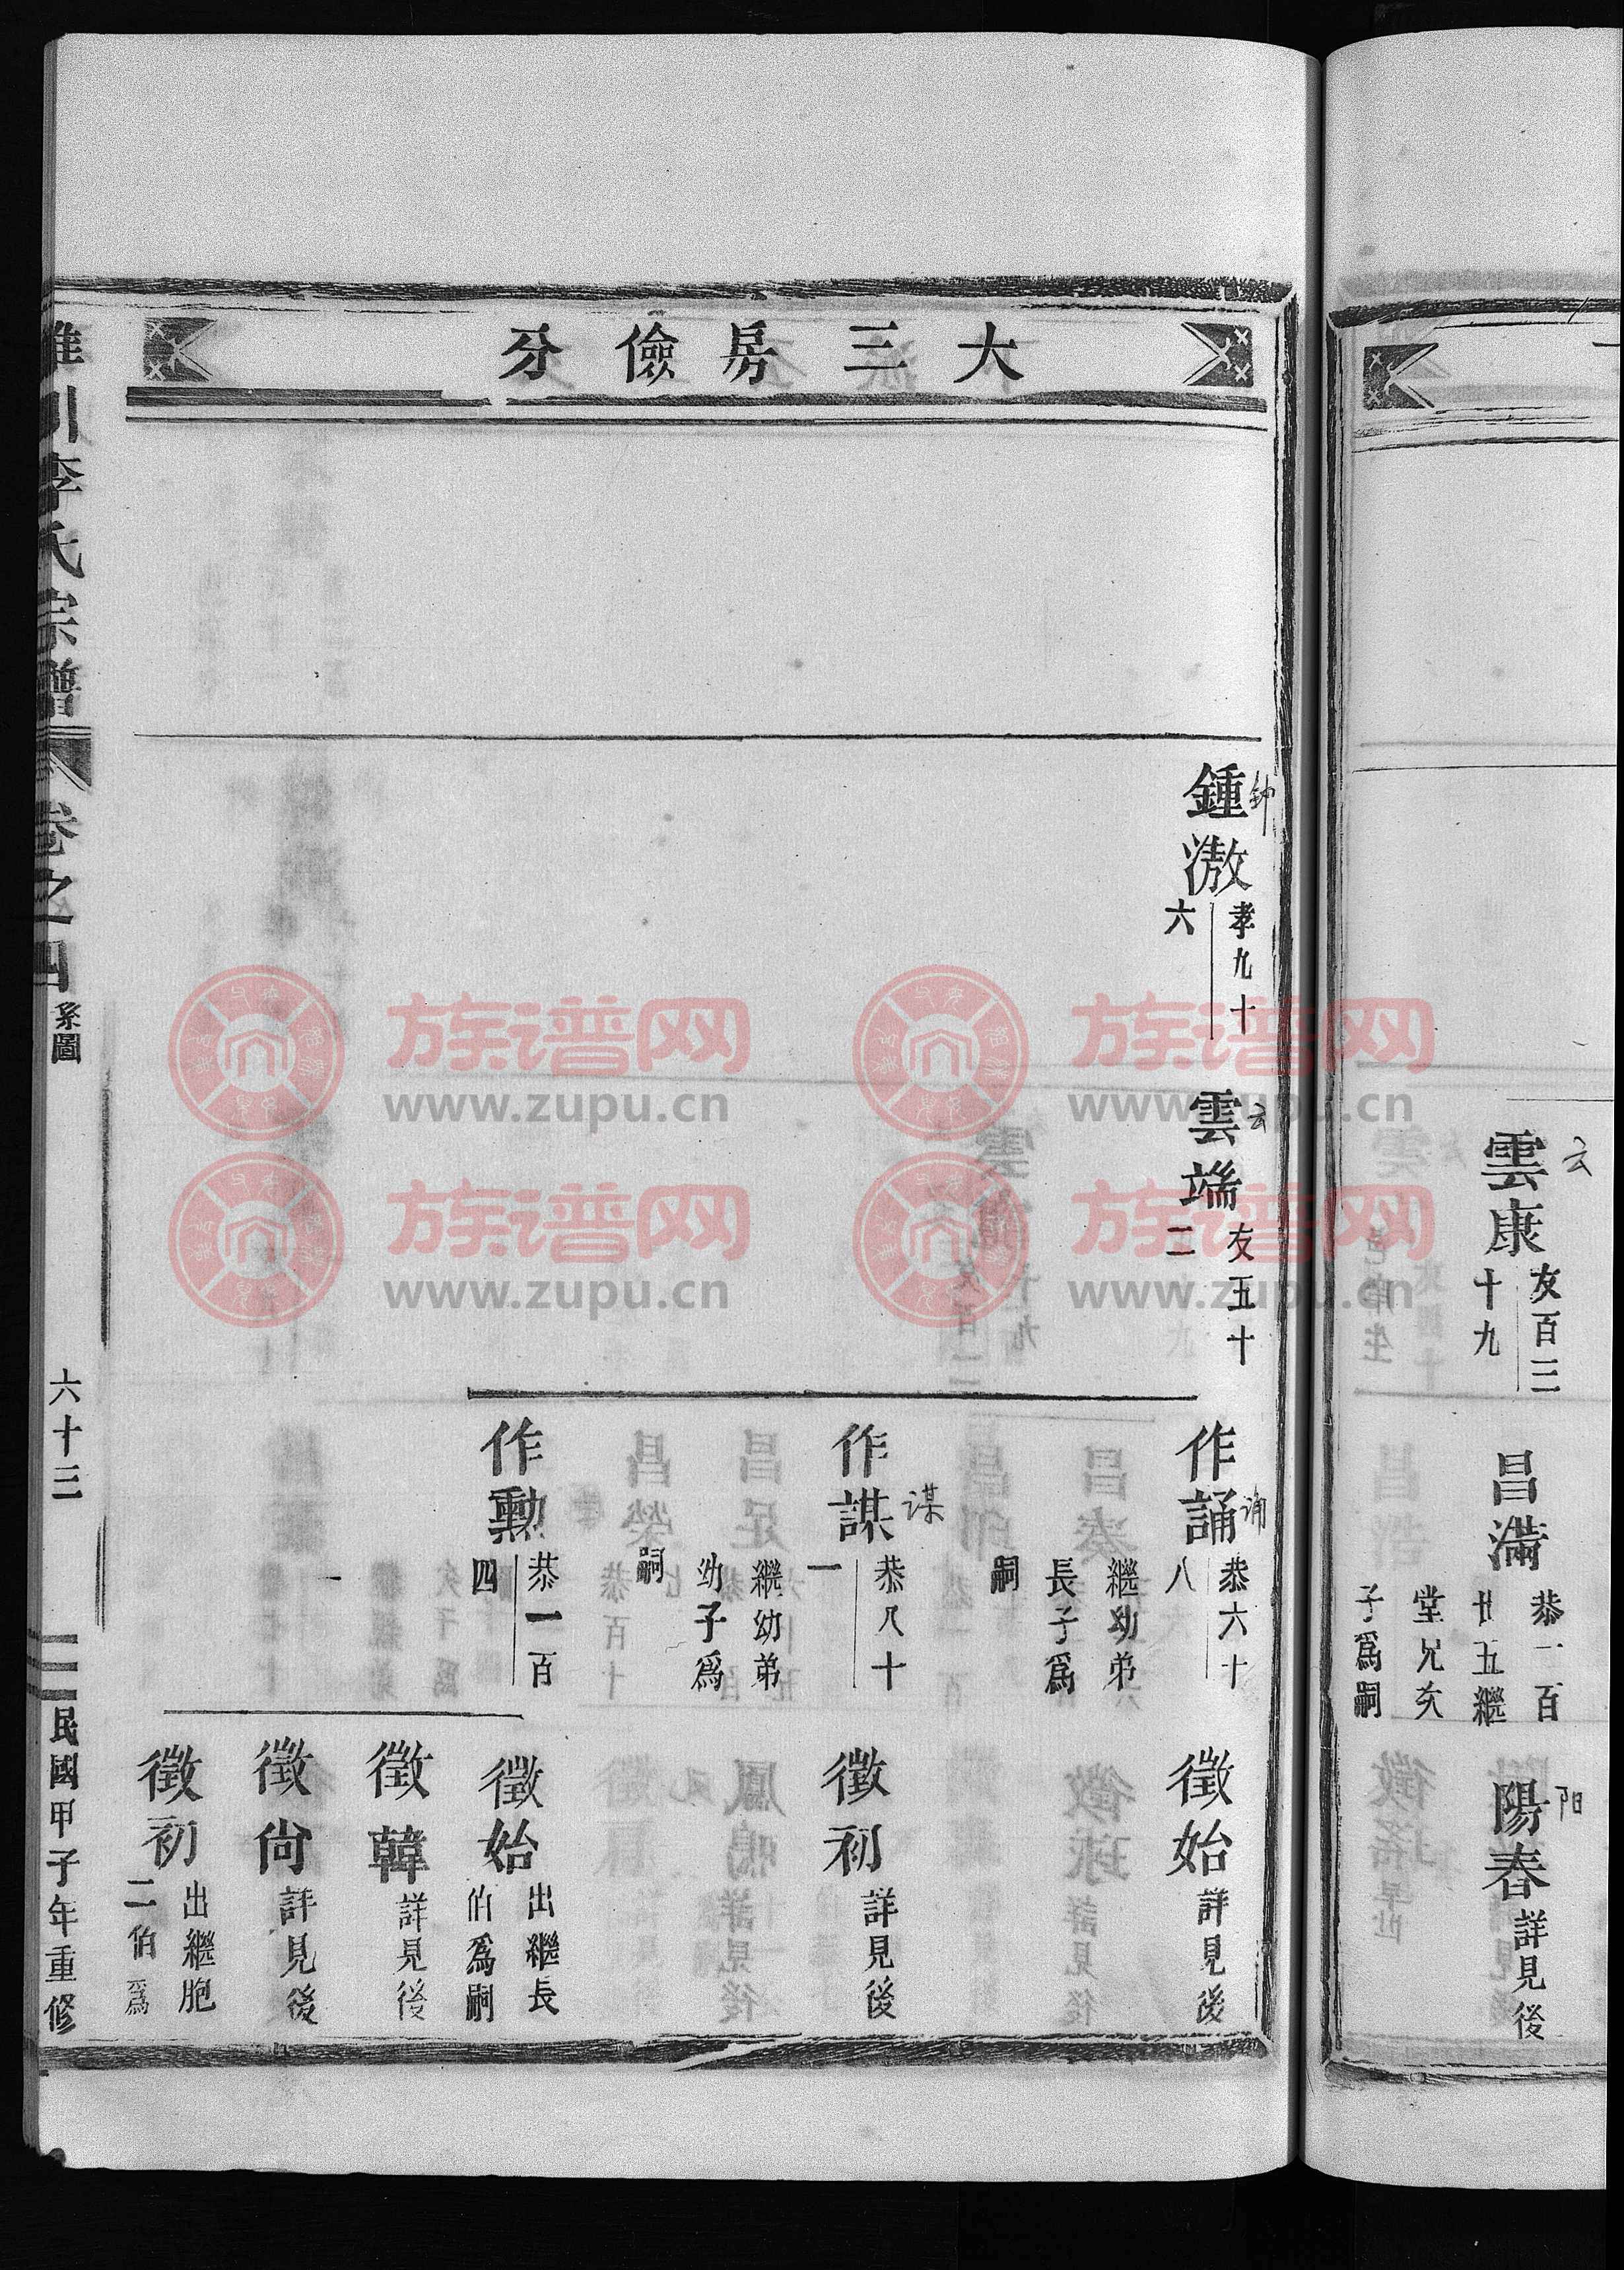 雲康
云
友百三
十九
昌滿
恭一百
廿五繼
堂兄亥
子爲嗣
陽春
阳
詳見後
大三房儉分
鍾漖
钟
孝九十
六
雲端
云
友五十
二
作誦
诵
恭六十
八
繼幼弟
長子爲
嗣
徵始
詳見後
作謀
谋
恭八十
一
繼幼弟
幼子爲
嗣
徵初
詳見後
作勲
恭一百
四
徵始
出繼長
伯爲嗣
徵韓
詳見後
徵尙
詳見後
徵初
出繼胞
二伯爲
李氏宗譜
卷之四
系圖
六十三
民國甲子年重修
族谱网
www.zupu.cn
族谱网
www.zupu.cn
族谱网
www.zupu.cn
族谱网
www.zupu.cn